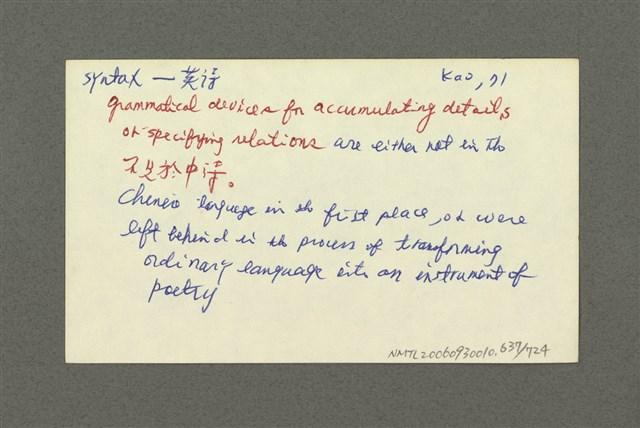 syntax — 英诗 Kao, 71
grammatical devices for accumulating details
or specifying relations are either not in the
不見於中诗。
Chinese language in the first place, or were
left behind in the process of transforming
ordinary language into an instrument of
poetry
NMTL20060930010.637/724